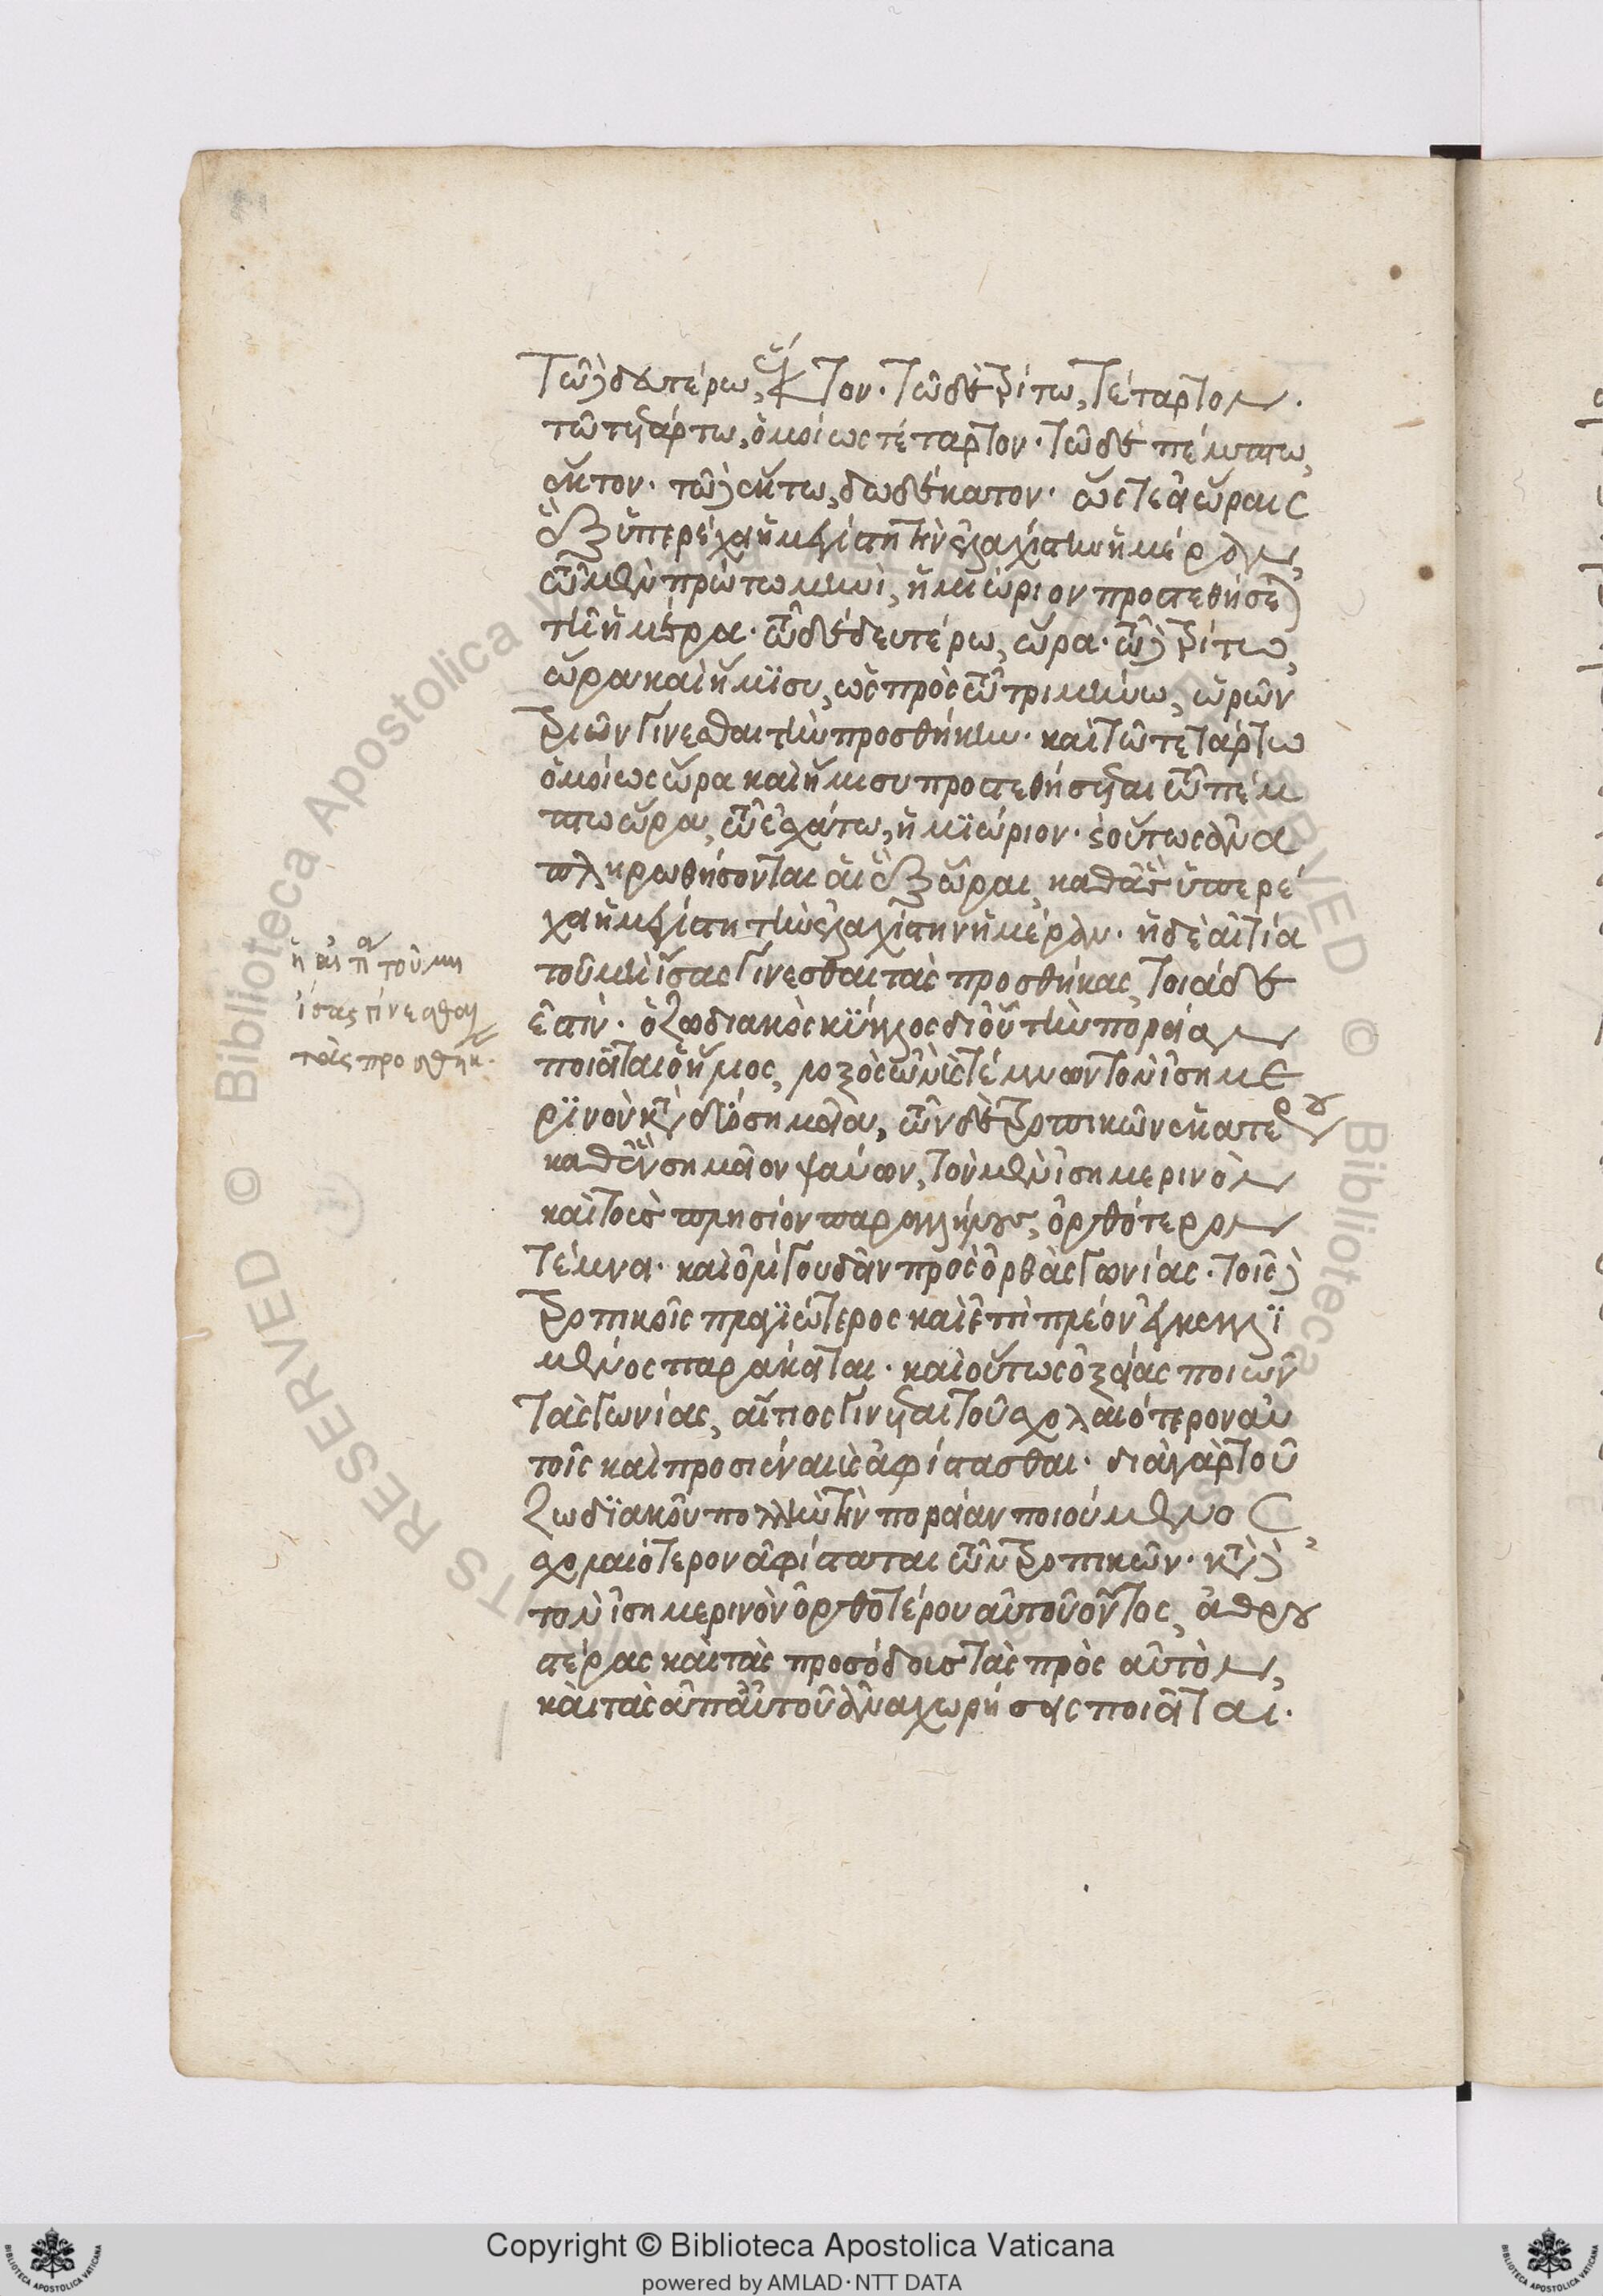 τῶ δὲ δευτέρω, ἕκτον· τῶ δὲ τρίτω, τέταρτον·
τῶ τετάρτω, ὁμοίως τέταρτον· τῶ δὲ πέμπτω,
ἕκτον· τῶ δὲ ἕκτω, δωδέκατον· ὥστε αἷς ὥραις
ὑπερέχει ἡ μεγίστη τὴν ἐλαχίστην ἡμέραν,
τῶ μὲν πρώτω μηνὶ, ἡμιώριον προστεθήσεται
τῆ ἡμέρα· τῶ δὲ δευτέρω, ὥρα· τῶ δὲ τρίτω,
ὥρα καὶ ἥμϊσυ, ὡς πρὸς τῶ τριμήνω, ὡρῶν
τριῶν γίνεσθαι τὴν προσθήκην· καὶ τῶ τετάρτω
ὁμοίως ὥρα καὶ ἥμισυ προστεθήσεται τῶ πέμ
πτω ὥρα, τῶ ἐσχάτω, ἡμϊώριον· οὕτως ἀνα
πληρωθήσονται αἱ ὥραι, καθ' ἃς ὑπερέ
χει ἡ μεγίστη τὴν ἐλαχίστην ἡμέραν· ἡ δὲ αἰτία
τοῦ μὴ ἴσας γίνεσθαι τὰς προσθήκας, τοιάδε
ἐστίν· ὁ ζωδιακὸς κύκλος δι' οὗ τὴν πορείαν
ποιεῖται ὁ ἥλιος, λοξὸς ὢν καὶ τέμνων τὸν ἰσημε
ρϊνὸν κατὰ δύο σημεῖα, τῶν δὲ τροπικῶν ἑκατέρου
καθ' ἓν σημεῖον ψαύων, τὸν μὲν ἰσημερινὸν
καὶ τοὺς πλησίον παραλλήλους, ὀρθότερον
τέμνει· καὶ ὀλίγου δεῖν πρὸς ὀρθὰς γωνίας· τοῖς δὲ
τροπικοῖς πλαγϊώτερος καὶ ἐπὶ πλέον ἐγκεκλϊ
μένος παράκειται· καὶ οὕτως ὀξείας ποιῶν
τὰς γωνίας, αἴτιος γίνεται τοῦ σχολαιότερον αὐ
τοῖς καὶ προσιέναι καὶ ἀφίστασθαι· διὰ γὰρ τοῦ
ζωδϊακοῦ πολλὴν τὴν πορείαν ποιούμενος
σχολαιότερον ἀφίσταται τῶν τροπικῶν· κατὰ δὲ
τὸν ἰσημερινὸν ὀρθοτέρου αὐτοῦ ὄντος, ἀθρου
στέρας καὶ τὰς προσόδους τὰς πρὸς αὐτὸν,
καὶ τὰς ἀπ' αὐτοῦ ἀναχωρήσεις ποιεῖται·
ἡ αἰτία τοῦ μὴ
ἴσας γίνεσθαι
τὰς προσθήκ.
Copyright © Biblioteca Apostolica Vaticana
powered by AMLAD·NTT DATA